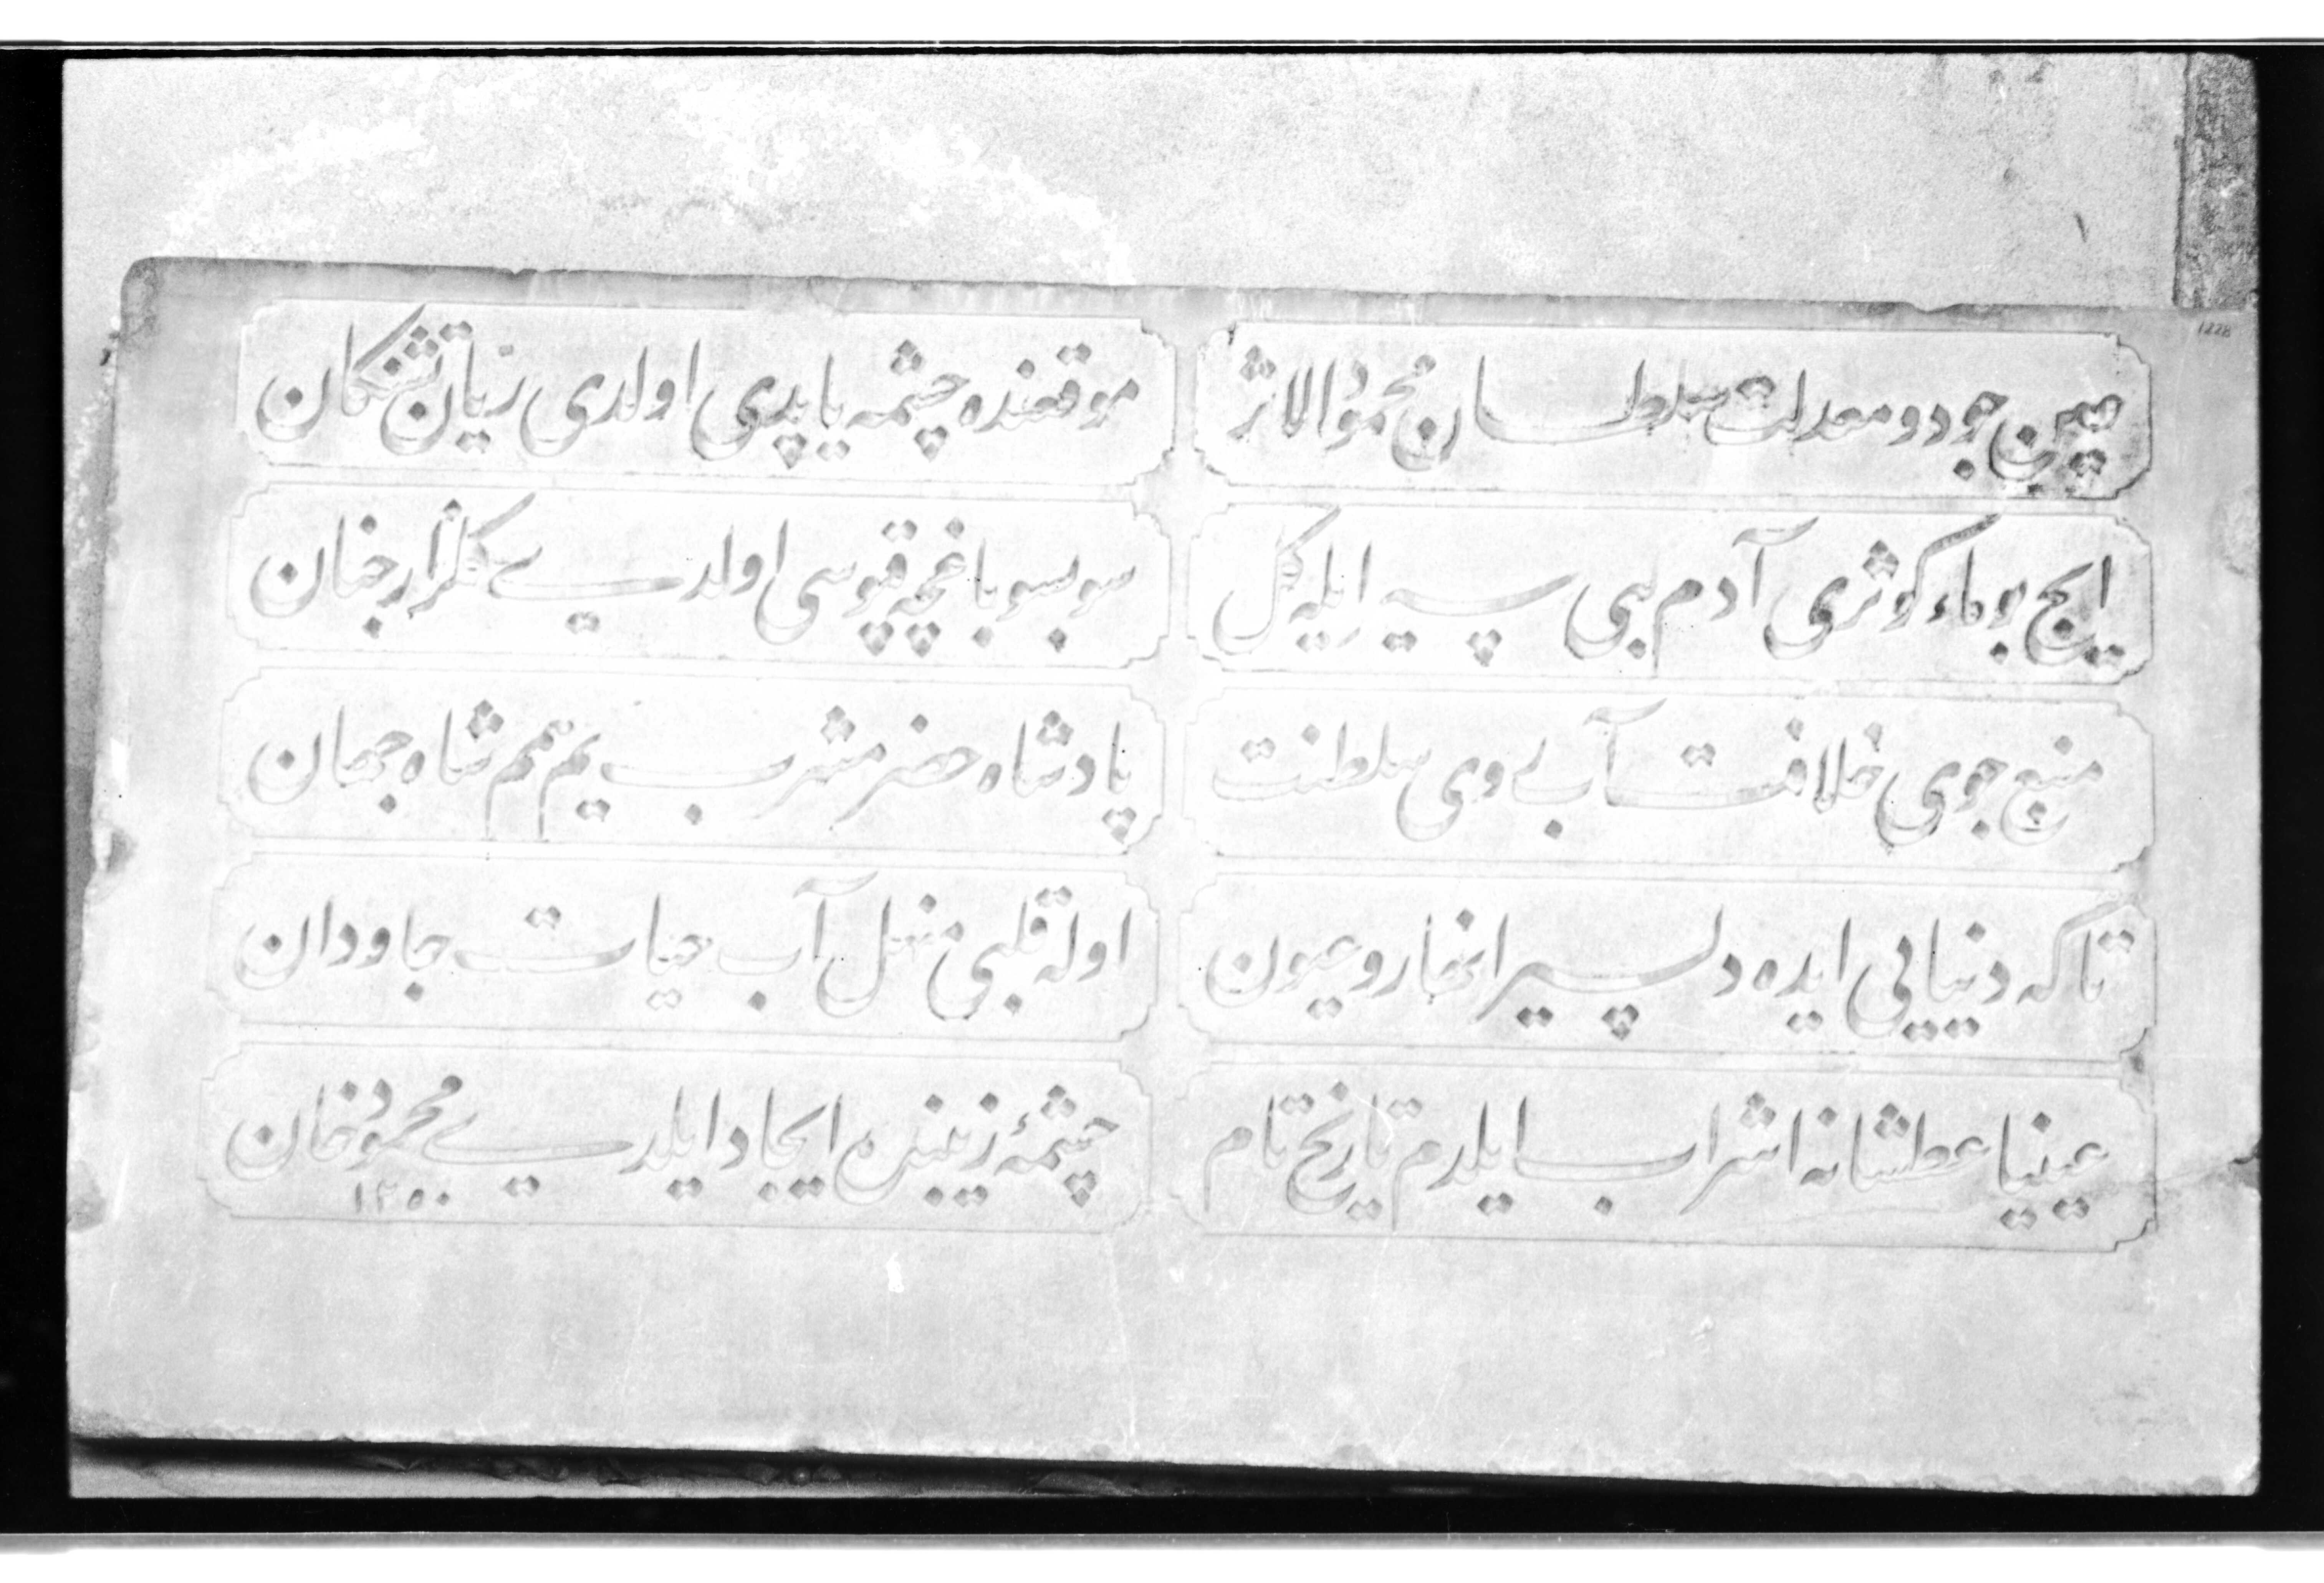 1228
عین جود و معدلت سلطان محمود الاثر
موقعنده چشمه یاپدی اولدی ریان تشنکان
ایچ بو ماء کوثری آدم کبی سیر ایله کل
سو بسو باغچه قپوسی اولدی کلزار جنان
منبع جوی خلافت آب روی سلطنت
پادشاه خضر مشرب یم همم شاه جهان
تا که دنیایی ایده دلسیر انهار و عیون
اوله قلبی منهل آب حیات جاودان
عینیا عطشانه اشراب ایلدم تاریخ تام
چشمۀ زیبنده ایجاد ایلدی محمود خان
۱۲۵۰